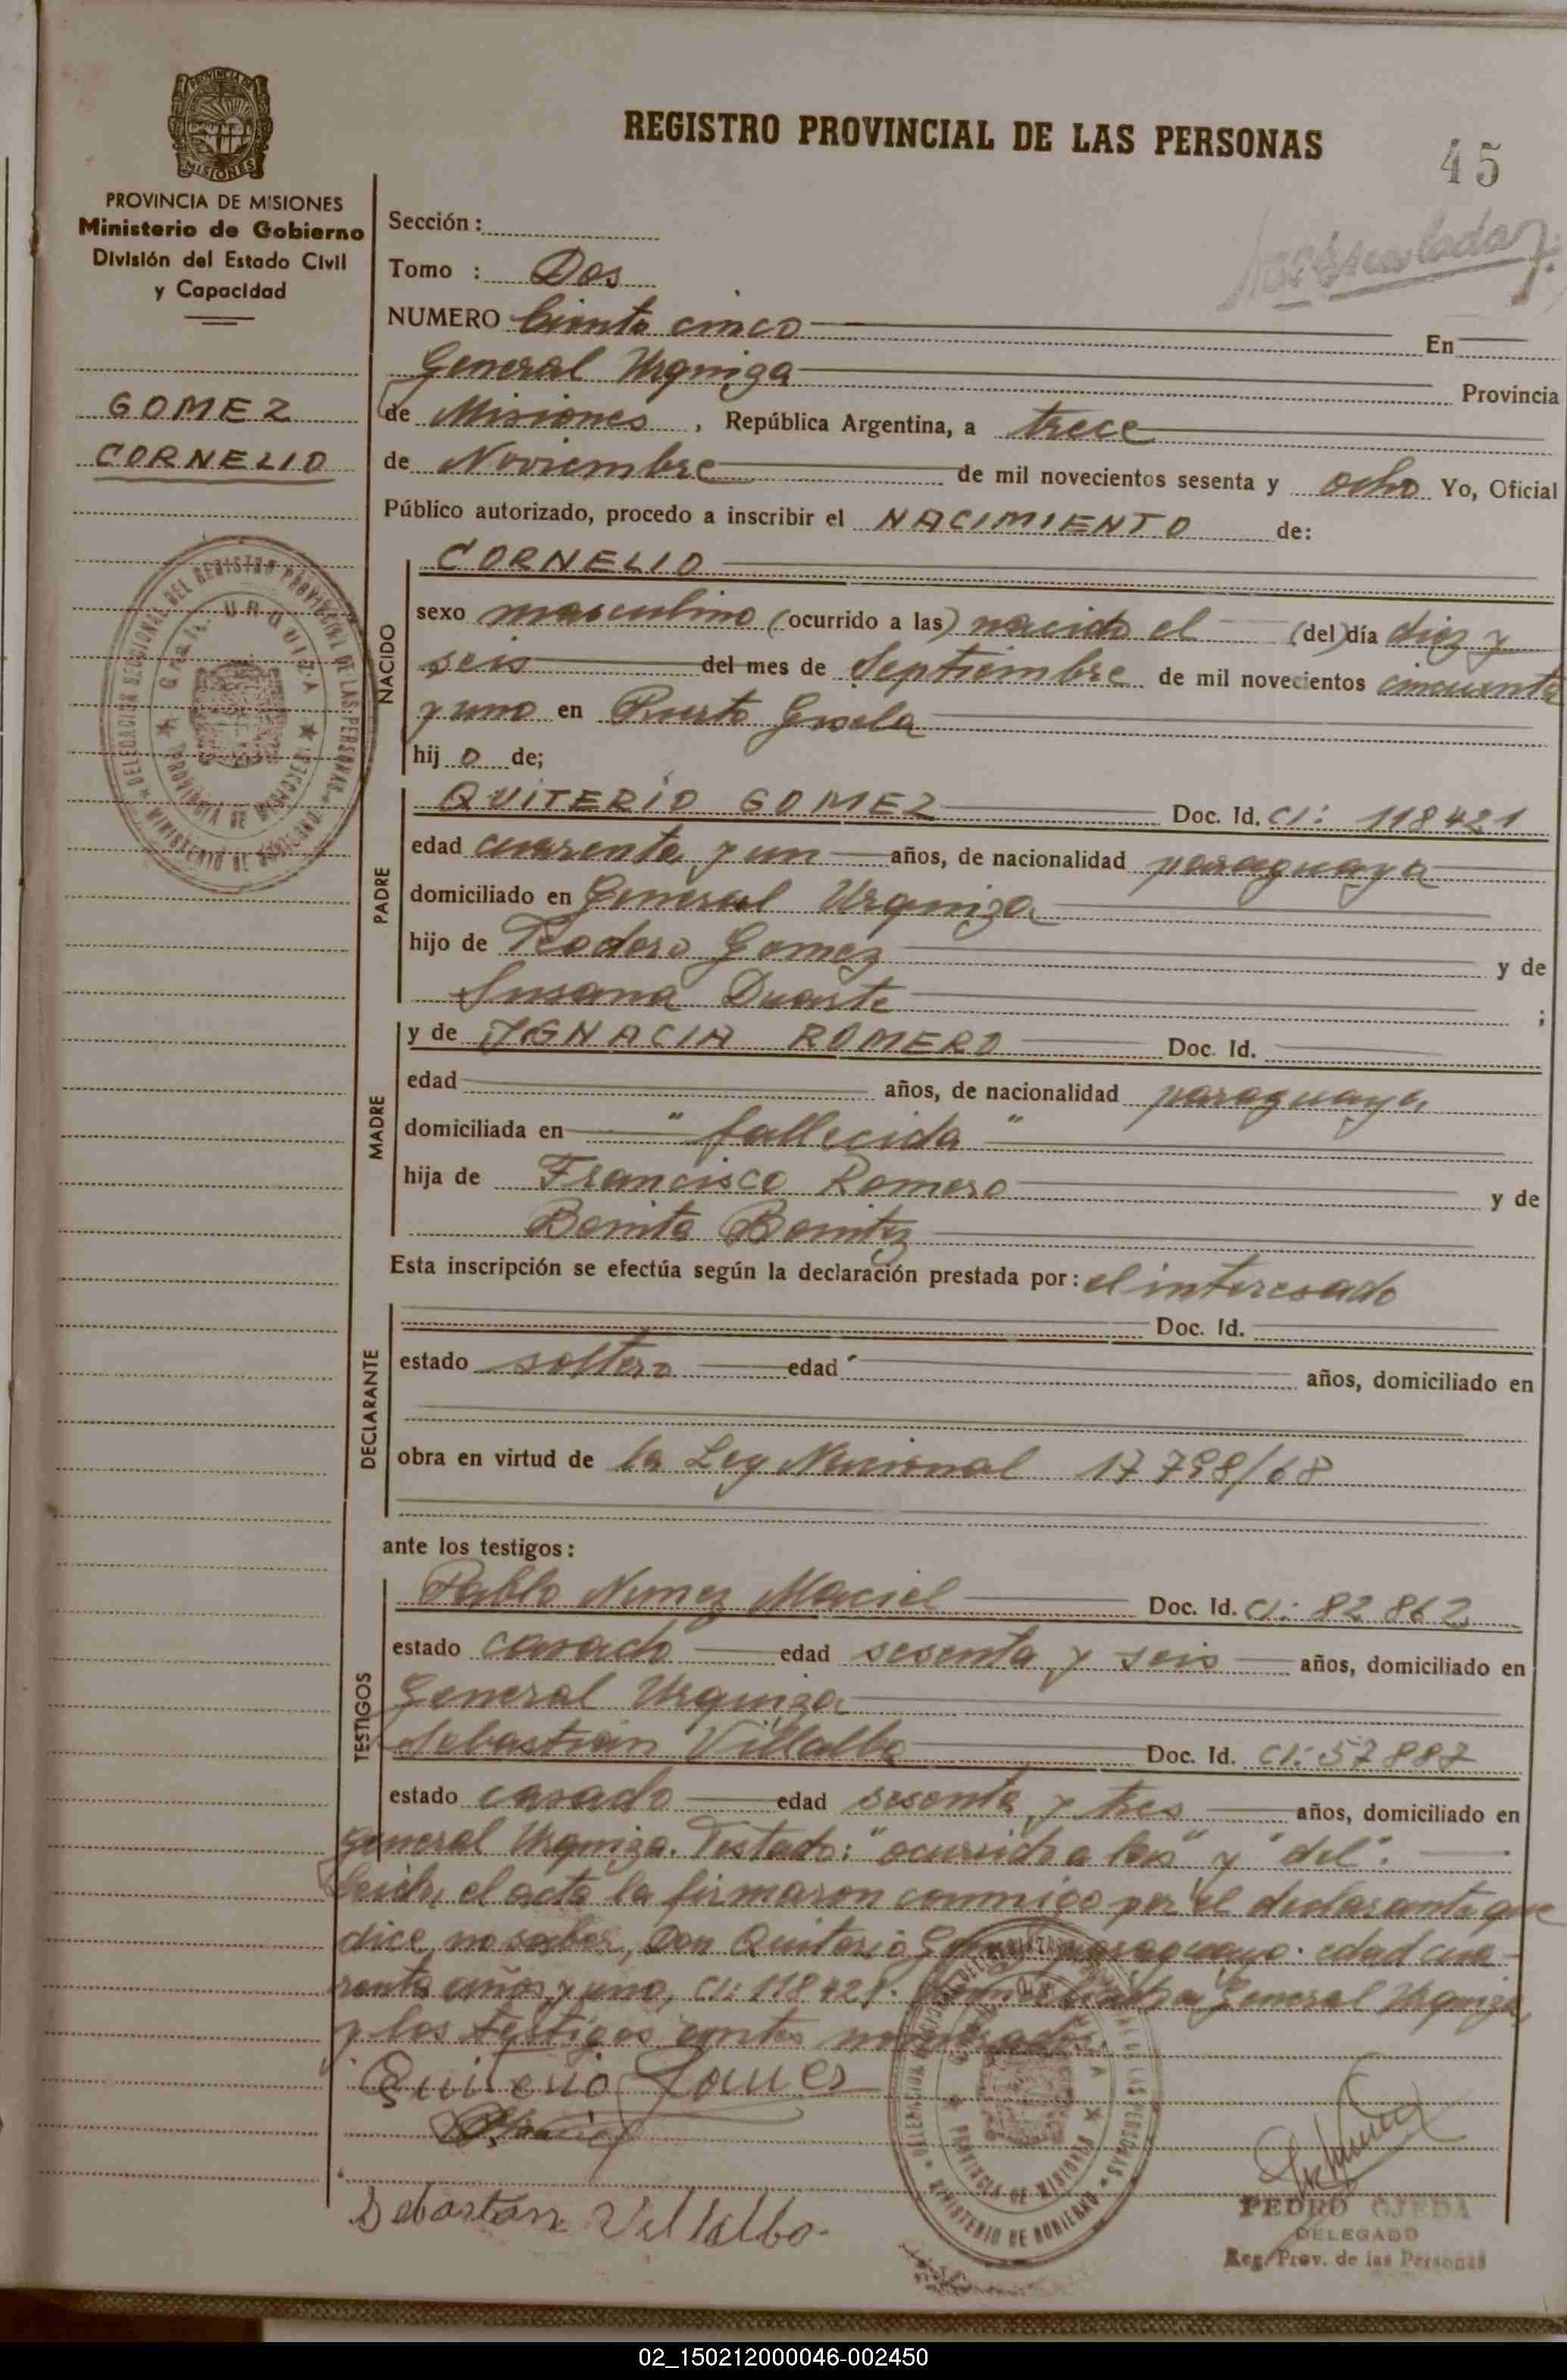 REGISTRO PROVINCIAL DE LAS PERSONAS
45
PROVINCIA DE MISIONES
Ministerio de Gobierno
División del Estado Civil
y Capacidad
GOMEZ
CORNELIO
Sección:
Tomo : Dos
NUMERO Ciento cinco En
General Urquiza Provincia
de Misiones, República Argentina, a trece
de Noviembre de mil novecientos sesenta y ocho Yo, Oficial
Público autorizado, procedo a inscribir el NACIMIENTO de:
NACIDO
CORNELIO
sexo masculino (ocurrido a las) nacido el (del) día diez y
seis del mes de Septiembre de mil novecientos cincuenta
y uno en Puerto Gisela
hijo de;
PADRE
QUITERIO GOMEZ Doc. Id. CI: 118421
edad cuarenta y un años, de nacionalidad paraguaya
domiciliado en General Urquiza
hijo de Teodoro Gomez y de
Susana Duarte ;
MADRE
y de IGNACIA ROMERO Doc. Id.
edad años, de nacionalidad paraguaya
domiciliada en "fallecida"
hija de Francisco Romero y de
Benita Benitez
Esta inscripción se efectúa según la declaración prestada por: el interesado
DECLARANTE
Doc. Id.
estado soltero edad años, domiciliado en
obra en virtud de la Ley Nacional 17798/68
ante los testigos:
TESTIGOS
Pablo Nunez Maciel Doc. Id. CI: 82862
estado casado edad sesenta y seis años, domiciliado en
General Urquiza
Sebastian Villalba Doc. Id. CI: 57887
estado casado edad sesenta y tres años, domiciliado en
General Urquiza. Testado: "ocurrido a las" y "del".
Leida el acta la firmaron conmigo por el declarante que
dice no saber, Don Quiterio Gomez paraguayo. edad cua-
renta años y uno, CI: 118421. General Urquiza,
y los testigos antes nombrados.
Quiterio Gomez
Sebastian Villalba
PEDRO OJEDA
DELEGADO
Reg. Prov. de las Personas
02_150212000046-002450